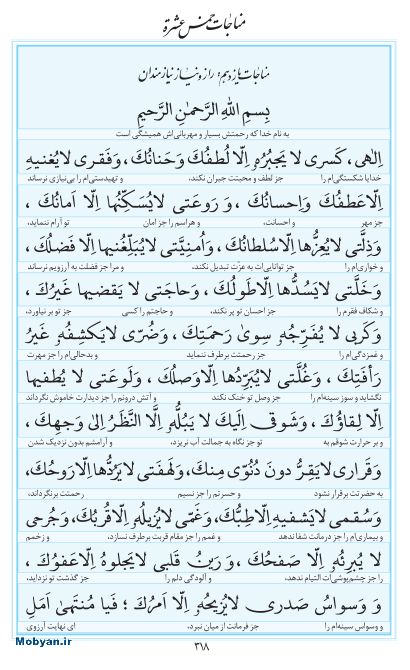 مناجات خمس عشرة
مناجات یازدهم: راز و نیاز نیازمندان
بِسمِ اللهِ الرَّحمٰنِ الرَّحیمِ
به نام خدا که رحمتش بسیار و مهربانی‌اش همیشگی است
اِلٰهی، کَسری لا یَجبُرُهٗ اِلّا لُطفُكَ وَحَنانُكَ، وَفَقری لایُغنیهِ
خدایا شکستگی‌ام را جز لطف و محبتت جبران نکند، و تهیدستی‌ام را بی‌نیازی نرساند
اِلّاعَطفُكَ وَاِحسانُكَ، وَ رَوعَتی لایُسَکِّنُها اِلّا اَمانُكَ،
جز مهر و احسانت، و هراسم را جز امان تو آرام ننماید،
وَذِلَّتی لایُعِزُّها اِلّاسُلطانُكَ، وَاُمنِیَّتی لایُبَلِّغُنیها اِلّا فَضلُكَ،
و خواری‌ام را جز توانایی‌ات به عزّت تبدیل نکند، و مرا جز فضلت به آرزویم نرساند
وَخَلَّتی لایَسُدُّها اِلّاطَولُكَ، وَحاجَتی لا یَقضیها غَیرُكَ،
و شکاف فقرم را جز احسان تو پر نکند، و حاجتم را کسی جز تو بر نیاورد،
وَکَربی لا یُفَرِّجُهٗ سِویٰ رَحمَتِكَ، وَضُرّی لایَکشِفُهٗ غَیرُ
و غمزدگی‌ام را جز رحمتت برطرف ننماید و بدحالی‌ام را جز مهرت
رَأفَتِكَ، وَغُلَّتی لایُبَرِّدُها اِلّاوَصلُكَ، وَلَوعَتی لا یُطفیها
نگشاید و سوز سینه‌ام را جز وصل تو خنک نکند و آتش درونم را جز دیدارت خاموش نگرداند
اِلّا لِقاؤُكَ، وَشَوقی اِلَیكَ لا یَبُلُّهٗ اِلَّا النَّظَرُ اِلیٰ وَجهِكَ،
و بر حرارت شوقم به تو جز نگاه به جمالت آب نریزد، و آرامشم بدون نزدیک شدن
وَقَراری لایَقِرُّ دونَ دُنُوّی مِنكَ، وَلَهفَتی لایَرُدُّها اِلّارَوحُكَ،
به حضرتت برقرار نشود و حسرتم را جز نسیم رحمتت برنگرداند،
وَسُقمی لایَشفیهِ اِلّاطِبُّكَ، وَغَمّی لایُزیلُهٗ اِلّا قُربُكَ، وَجُرحی
و بیماری‌ام را جز درمانت شفا ندهد و غمم را جز مقام قربت برطرف نسازد، و زخمم
لا یُبرِئُهٗ اِلّا صَفحُكَ، وَ رَینُ قَلبی لایَجلوهُ اِلّاعَفوُكَ،
را جز چشم‌پوشی‌ات التیام ندهد، و آلودگی دلم را جز گذشت تو نزداید،
وَ وَسواسُ صَدری لایُزیحُهٗ اِلّا اَمرُكَ؛ فَیا مُنتَهیٰ اَمَلِ
و وسواس سینه‌ام را جز فرمانت از میان نبرد، ای نهایت آرزوی
٣١٨
Mobyan.ir